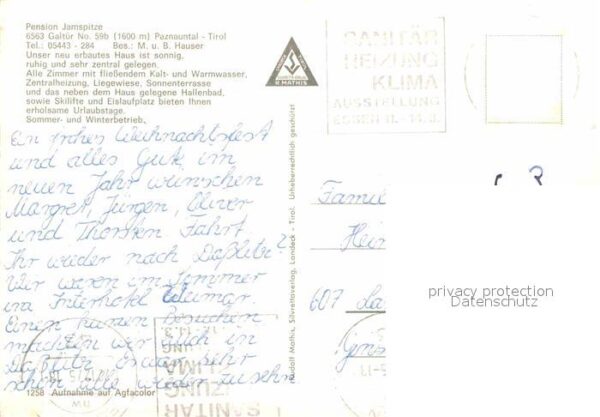 Pension Jamspitze
6563 Galtür No. 59b (1600 m) Paznauntal - Tirol
Tel.: 05443 - 284 Bes.: M. u. B. Hauser
Unser neu erbautes Haus ist sonnig,
ruhig und sehr zentral gelegen.
Alle Zimmer mit fließendem Kalt- und Warmwasser,
Zentralheizung, Liegewiese, Sonnenterrasse
und das neben dem Haus gelegene Hallenbad,
sowie Skilifte und Eislaufplatz bieten Ihnen
erholsame Urlaubstage.
Sommer- und Winterbetrieb.
Ein frohes Weihnachtsfest
und alles Gute im
neuen Jahr wünschen
Margret, Jürgen, Oliver
und Thorsten. Fahrt
Ihr wieder nach
Wir waren im Sommer
im Weimar.
Einen kurzen Besuchen
machten wir auch in
Es war sehr
schön alle wieder zu sehn
1258 Aufnahme auf Agfacolor
R. MATHIS
Rudolf Mathis, Silvrettaverlag, Landeck - Tirol. Urheberrechtlich geschützt
SANITÄR
HEIZUNG
KLIMA
AUSSTELLUNG
ESSEN 11.-14.3.
Famil
Hein
607 La
privacy protection
Datenschutz